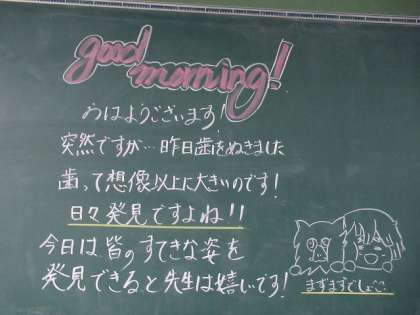 good
morning!
おはようございます!
突然ですが…昨日歯をぬきました
歯って想像以上に大きいのです!
日々発見ですよね!!
今日は皆のすてきな姿を
発見できると先生は嬉しいです!
まずまずでしょ